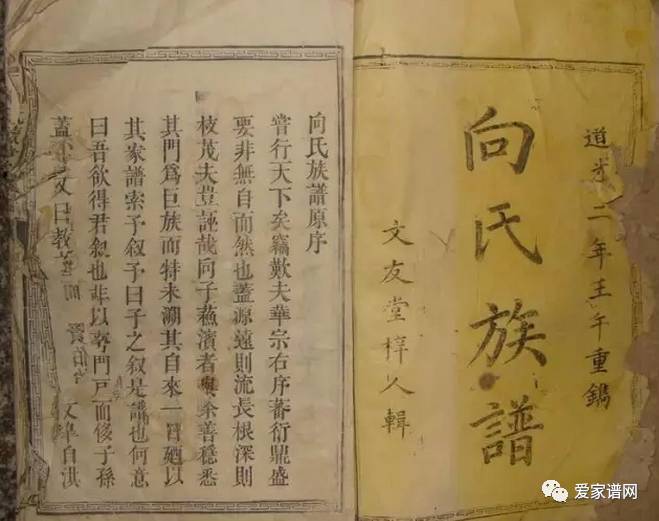 道光二年壬午重鐫
向氏族譜
文友堂梓人輯
向氏族譜原序
嘗行天下矣竊歎夫華宗右序蕃衍鼎盛
要非無自而然也蓋源遠則流長根深則
枝茂夫豈誣哉向子蘓濱者與余善穩悉
其門為巨族而特未溯其自來一日廼以
其家譜索予叙予曰子之叙是譜也何意
曰吾欲得君叙也非以夸門戶而侈子孫
蓋 文曰教 自淇
爱家谱网